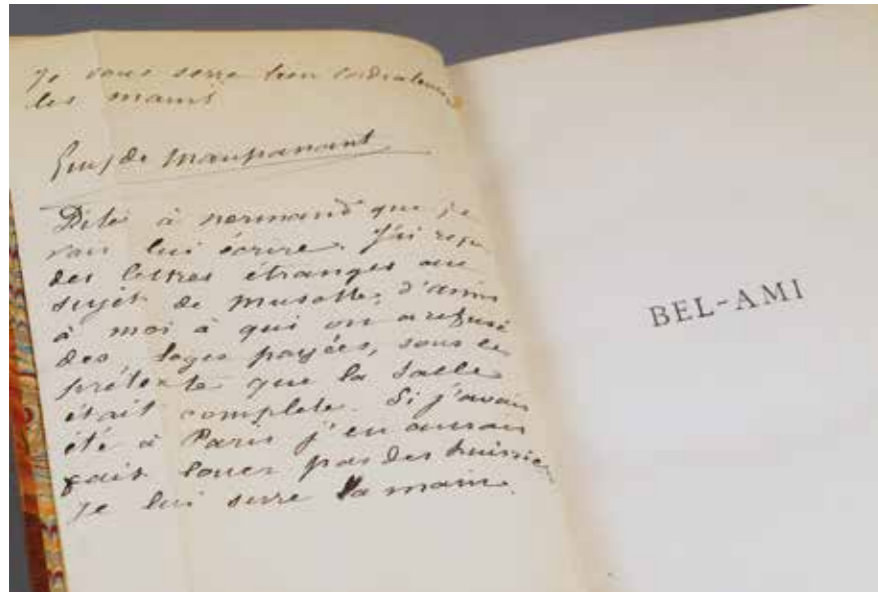 Je vous serre bien cordialement
les mains
Guy de Maupassant
Dites à normand que je
vais lui écrire. J'ai reçu
des lettres étranges au
sujet de musotte, d'amis
à moi à qui on a refusé
des loges payées, sous le
prétexte que la salle
était complete. Si j'avais
été à Paris j'en aurais
fait louer par des huissiers
Je lui serre la main.
BEL-AMI